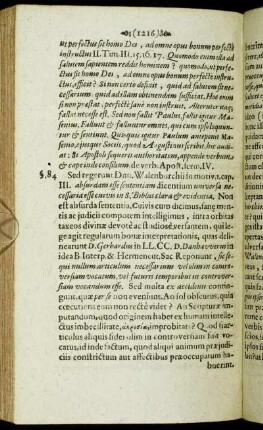 (1216)
ut perfectus sit homo Dei, ad omne opus bonum perfecte
instructus II. Tim. III. 15. 16. 17. Quomodo enim ita ad
salutem sapientem reddit hominem? quomodo, ut perfe-
ctus sit homo Dei, ad omne opus bonum perfecte instru-
ctus, efficit? Si non certo deferit, quid ad salutem sit ne-
cessarium, quid ad eam obtinendam sufficiat. Hoc enim
si non præstat, perfecte sane non instruit. Alterutrum
falsi necesse est. Sed non fallit Paulus, fallit igitur Ma-
senius. Fallunt & falluntur omnes, qui cum ipso loquun-
tur & sentiunt. Quotquot igitur Paulum anteponunt Ma-
senio, ejusque Sociis, quod & Augustinus scribit, hoc audi-
ant: Si Apostoli superest authoritatem, appende verbum,
& cape inde consilium. de verb. Apost. serm. IV.
§. 84 Sed regerunt Dnn. Walenburchii in motiv. I. cap.
III. absurdam esse sententiam dicentium universa ne-
cessaria esse cuivis in S. Bibliis clara & evidentia. Non
est absurda sententia. Cuivis cum dicimus, sanæ men-
tis ac judicii compotem intelligimus, intra orbitas
taxeos divinæ devotè ac studiosè versantem, quiq;
agit regularum bonæ interpretationis, quas deli-
nearunt D. Gerhardus in LL. CC. D. Danhaverus in
idea B. Interp. & Hermeneut. Sac. Reponunt, si se-
qui nullum articulum necessarium vel olim in contro-
versiam vocatum, vel futuris temporibus in controver-
siam vocandum esse. Sed multa ex accidenti contin-
gunt, quæ per se non eveniunt. An sol obscurus, quia
cœcutientium non rectè videt? An Scripturæ im-
putandum, quod originem habet ex humani intelle-
ctus imbecillitate, improbitate? Quod fiar-
ticulus aliquis fidei olim in controversiam fuit vo-
catus, id inde factum, quod aliqui animum præju-
diciis constrictum aut affectibus præoccuparum ha-
buerint.